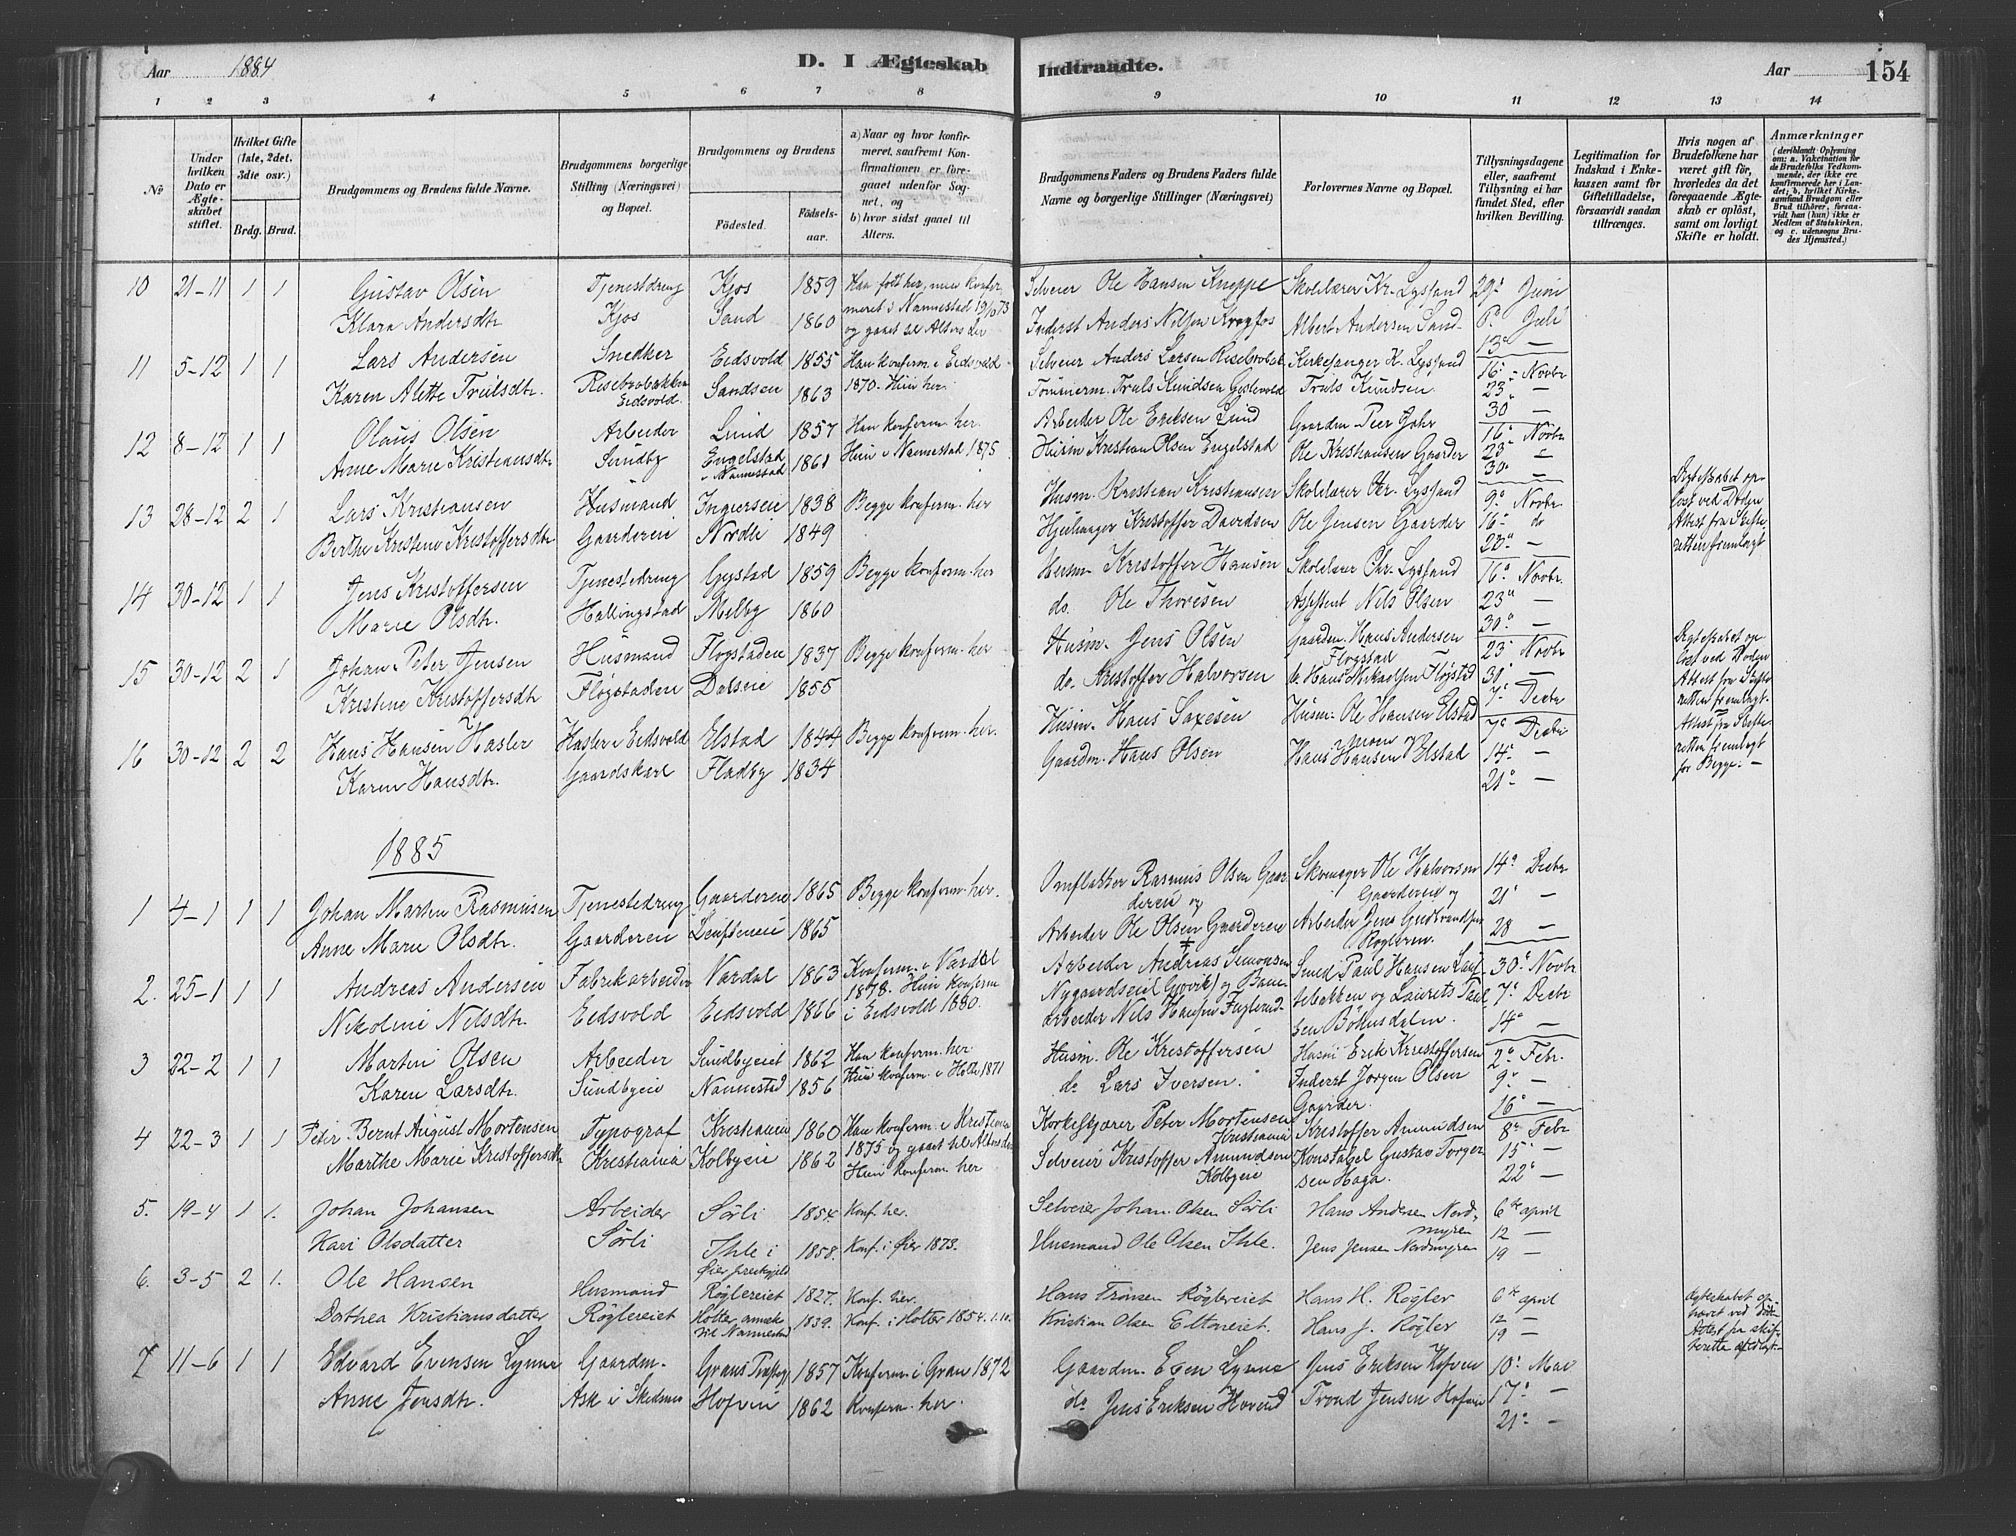 Aar 1884 D. I Ægteskab Indtraadte. Aar 154
1 2 3 4 5 6 7 8 9 10 11 12 13 14
No
Under hvilken Dato er Ægteskabet stiftet.
Hvilket Gifte (1ste, 2det, 3die osv.)
Brdg. Brud.
Brudgommens og Brudens fulde Navne.
Brudgommens borgerlige Stilling (Næringsvei) og Bopæl.
Brudgommens og Brudens
Födested. Födselsaar.
a) Naar og hvor konfirmeret, saafremt Konfirmationen er foregaaet udenfor Sognet, og
b) hvor sidst gaaet til Alters.
Brudgommens Faders og Brudens Faders fulde Navne og borgerlige Stillinger (Næringsvei)
Forlovernes Navne og Bopæl.
Tillysningsdagene eller, saafremt Tillysning ei har fundet Sted, efter hvilken Bevilling.
Legitimation for Indskud i Enkekassen samt for Giftetilladelse, forsaavidt saadan tiltrænges.
Hvis nogen af Brudefolkene har været gift för, hvorledes da det foregaaende Ægteskab er oplöst, samt om lovligt Skifte er holdt.
Anmærkninger
10 21-11 1 1 Gustav Olsen Tjenestdreng Kjos 1859 Han født her, men konfirmeret i Nannestad 19/10 73 og gaaet til Alters her Selveier Ole Hansen Kneppe Skolelærer Kr. Lysfand 29. Juni
Klara Andersdtr Kjos Sand 1860 Inderst Anders Nilsen Krogfos Albert Andersen Sand 6. Juli
13 —
11 5-12 1 1 Lars Andersen Snedker Eidsvold 1855 Han konferm. i Eidsvold 1870. Hun her. Selveier Anders Larsen Kirkesanger K. Lysfand 16. Novbr
Karen Alette Trulsdtr. Eidsvold. Sandsen 1863 Tømmerm. Truls Knudsen Truls Knudsen 23 —
30 —
12 8-12 1 1 Olaus Olsen Arbeider Lund 1857 Han konferm. her. Arbeider Ole Eriksen Lund Gaarden Peer 16 Novbr.
Anne Marie Kristiansdtr Sundby Engelstad i Nannestad 1861 Hun i Nannestad 1875 Husm Kristian Olsen Engelstad Ole Kristiansen Gaarder 23 —
30 —
13 28-12 2 1 Lars Kristiansen Husmand Ingierseie 1838 Begge konferm. her Husm. Kristian Kristiansen Skolelærer Chr. Lysfand 9. Novbr. Ægteskabet opløst ved Døden
Berthe Kristine Kristoffersdtr Gaardereie Nordli 1849 Kristoffer Davidsen Ole Jensen Gaarder 16. do Attest fra Skifteretten fremlagt
—
14 30-12 1 1 Jens Kristoffersen Tjenestedreng Gystad 1859 Begge konferm. her Husm. Kristoffer Hansen Skolelærer Chr. Lysfand 16. Novbr.
Marie Olsdtr. Hallingstad Melby 1860 do. Ole Thoresen Assistent Nils Olsen 23 —
30 —
15 30-12 2 1 Johan Peter Jensen Husmand Flogstadeie 1837 Begge konferm. her Husm. Jens Olsen Gaardm. Hans Andersen Flogstad 23 Novbr Ægteskabet opløst ved Døden
Kristine Kristoffersdtr Flogstadeie Dalseie 1855 do. Kristoffer Halvorsen 30 — Attest fra Skifteretten fremlagt.
7. Decbr
16 30-12 2 2 Hans Hansen Hasler Hasler i Eidsvold Elstad 1844 Begge konferm. her. Husm. Hans Saxesen Husm. Ole Hansen Elstad 7. Decbr Attest fra Skifteretten fremlagt for Begge. —
Karen Hansdtr. Gaardskarl Fladby 1834 Gaardm. Hans Olsen Hans Hansen Elstad 14. —
21. —
1885
1 4-1 1 1 Johan Martin Rasmusen Tjenestedreng Gaardereie 1865 Begge konferm. her. Omflakker Rasmus Olsen Gaardereie og Skomager Ole Halvorsen Gaardereie og 14. Decbr
Anne Marie Olsdtr. Gaardereie 1865 Arbeider Ole Olsen Gaardereie Arbeider Jens Gudbrandsen 21. —
28 —
2. 25-1 1 1 Andreas Andersen Fabrikarbeider Vardal 1863 Konferm. i Vardal 1878. Hun konferm i Eidsvold 1880. Arbeider Andreas Simonsen Smed Paul Hansen 30. Novbr
Nikoline Nilsdtr. Eidsvold Eidsvold 1866 arbeider Nils Hansen og Laurets Paulsen Bøhnsdalen. 7. Decbr
14. —
3 22-2 1 1 Martin Olsen Arbeider Sundbyeiet 1862 Han konferm. her Husm. Ole Kristoffersen Husm Erik Kristoffersen 2. Febr.
Karen Larsdtr. Sundbyeie Nannestad 1856 Hun konferm. i Holte 1871 do Lars Iversen. Inderst Jørgen Olsen Gaarder. 9. —
16. —
4 22-3 1 1 Peter Bernt August Mortensen Typograf Kristiania 1860 Han konferm. i Kristiania 1875 og gaaet til Alters der Korkeskjærer Peter Mortensen Kristiania Kristoffer Amundsen 8. Febr
Marthe Marie Kristoffersdtr Kristiania Kolbyeie 1862 Hun konferm. her Selveier Kristoffer Amundsen Kolbyeie Konstabel Gustav Torgersen Haga. 15. —
22. —
5. 19-4 1 1. Johan Johansen Arbeider Sørli 1854. Konf. her. Selveier Johan Olsen Sørli Hans Andersen Nordmyren 6te april
Kari Olsdatter Sørli Ihle i Øier præstgjeld 1858. Konf. i Øier 1873. Husmand Ole Olsen Ihle. Jens Jensen Nordmyren 12 —
19 —
6. 3-5 2 1. Ole Hansen Husmand Røglereiet 1827. Konf. her. Hans Tronsen Røglereiet Hans H. Røgler 6te april Ægteskabet ophævet ved Død
Dorthea Kristiansdatter Røglereiet Holter annex til Nannestad 1839. Konf. i Holter 1854. 1.10. Kristian Olsen Eltoneiet. Hans J. Røgler 12 —
19 —
7 11-6 1 1 Edvard Evensen Lynne Gaardm. Grans Præstgj 1857 Konferm. i Gran 1872 Gaardm. Even Lynne Jens Eriksen Hofvin 10. Mai
Anne Jensdtr. Ask i Skedsmo Hofvin 1862 Konferm. her. do Jens Eriksen Hovind Trond Jensen Hofvin 17. —
21. —